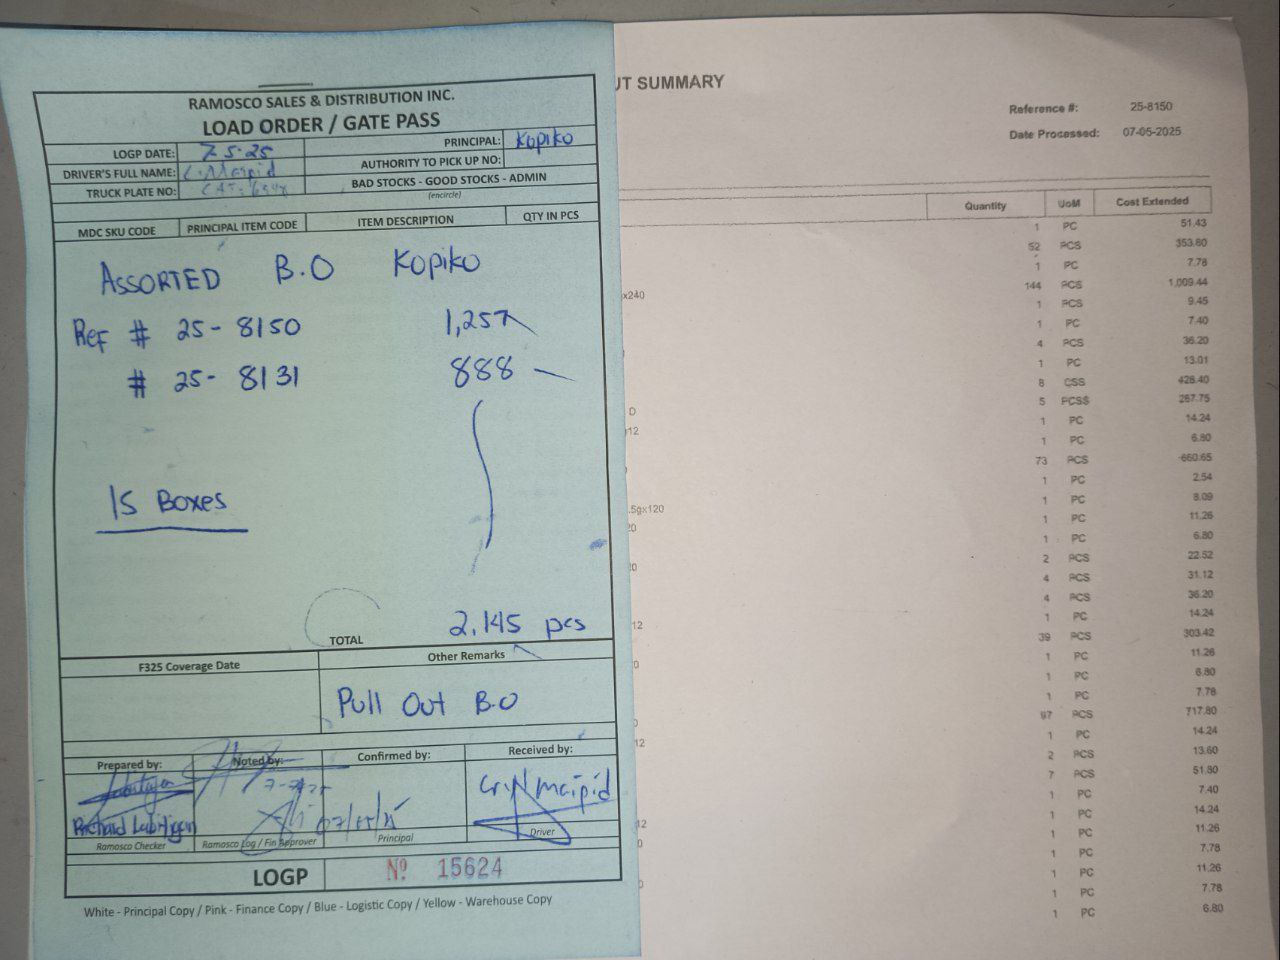 RAMOSCO SALES & DISTRIBUTION INC.
LOAD ORDER / GATE PASS
LOGP DATE: 7-5-25
PRINCIPAL: Kopiko
DRIVER'S FULL NAME:
AUTHORITY TO PICK UP NO:
TRUCK PLATE NO:
BAD STOCKS - GOOD STOCKS - ADMIN
(encircle)
MDC SKU CODE PRINCIPAL ITEM CODE ITEM DESCRIPTION QTY IN PCS
ASSORTED B.O Kopiko
Ref # 25-8150 1,257
# 25-8131 888
15 Boxes
TOTAL 2,145 pcs
F325 Coverage Date Other Remarks
Pull Out B.O
Prepared by: Noted by: Confirmed by: Received by:
Ramosco Checker Ramosco Log / Fin Approver Principal Driver
LOGP Nº 15624
White - Principal Copy / Pink - Finance Copy / Blue - Logistic Copy / Yellow - Warehouse Copy
UT SUMMARY
Reference #: 25-8150
Date Processed: 07-05-2025
Quantity UoM Cost Extended
1 PC 51.43
52 PCS 353.60
1 PC 7.78
x240 144 PCS 1,009.44
1 PCS 9.45
1 PC 7.40
4 PCS 36.20
1 PC 13.01
8 CSS 428.40
D 5 PCS$ 267.75
12 1 PC 14.24
1 PC 6.80
73 PCS 660.65
1 PC 2.54
.5gx120 1 PC 8.09
20 1 PC 11.26
1 PC 6.80
20 2 PCS 22.52
4 PCS 31.12
4 PCS 36.20
12 1 PC 14.24
39 PCS 303.42
0 1 PC 11.26
1 PC 6.80
1 PC 7.78
97 PCS 717.80
12 1 PC 14.24
2 PCS 13.60
7 PCS 51.80
1 PC 7.40
12 1 PC 14.24
0 1 PC 11.26
1 PC 7.78
0 1 PC 11.26
1 PC 7.78
1 PC 6.80